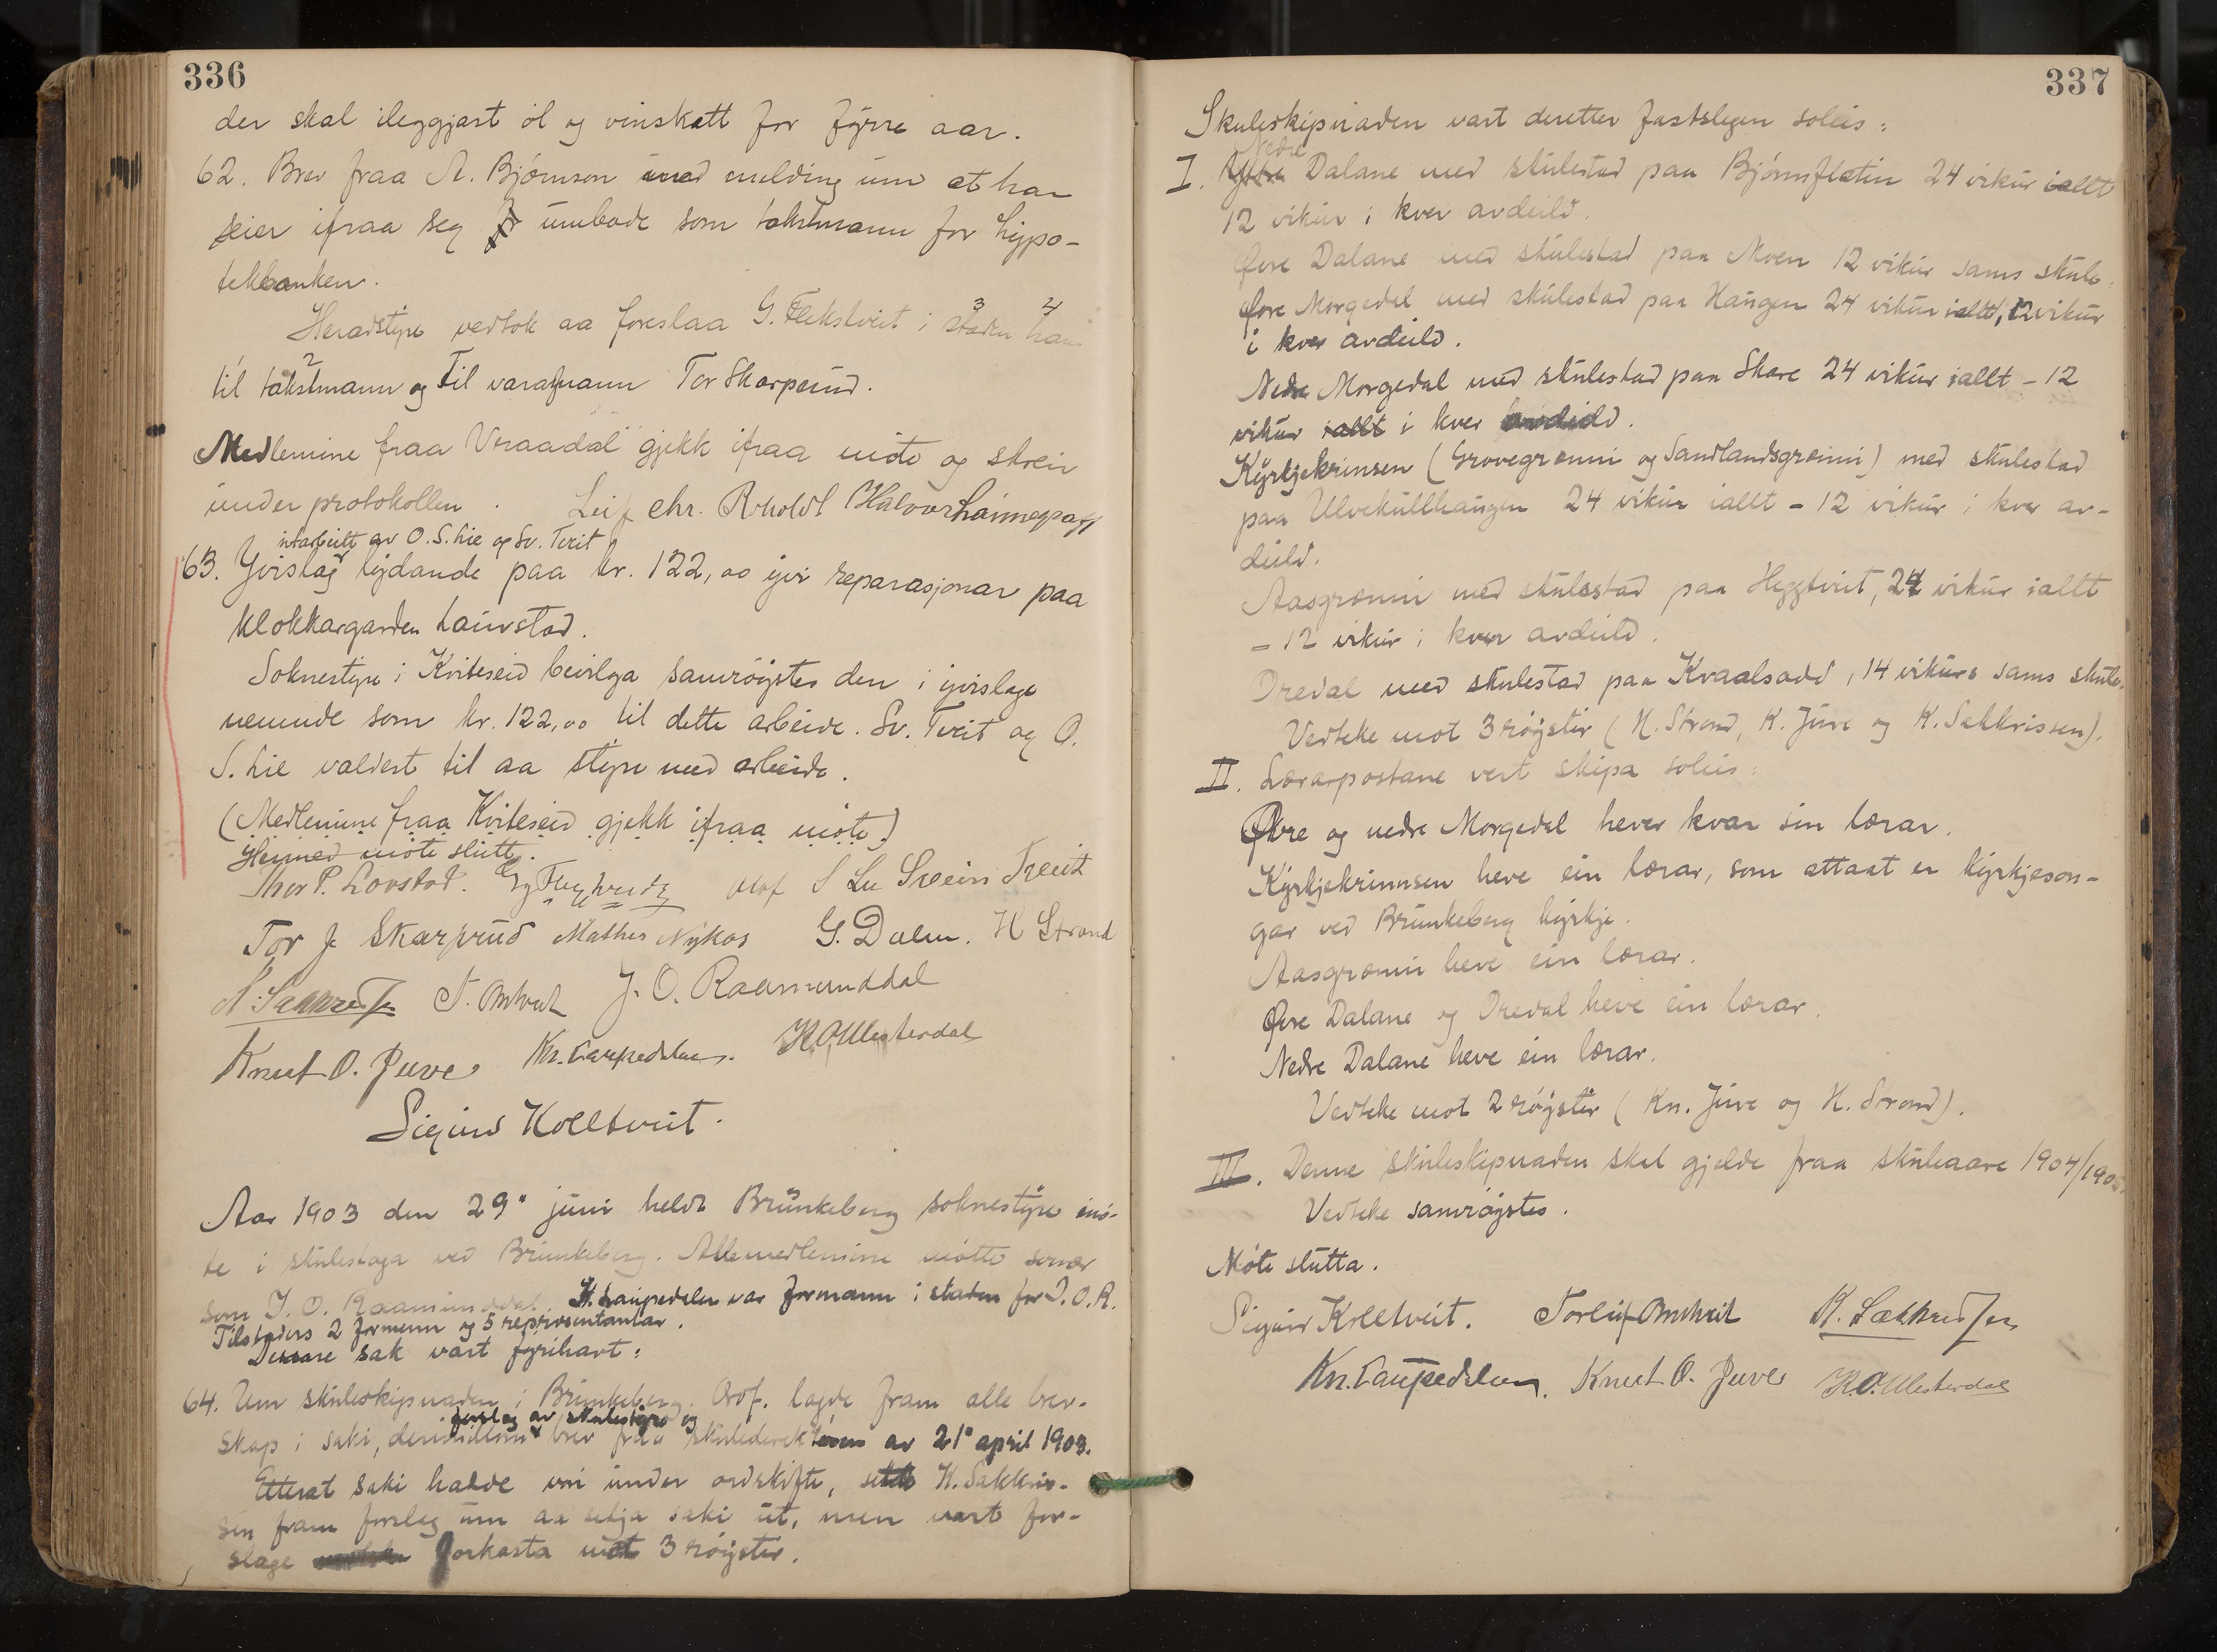 336
der skal ileggjast öl og vinskatt for fyrre aar.
62. Brev fraa A. Björnson med melding um at han
seier ifraa seg umbode som takstmann for hypo-
tekbanken.
Heradstyre vedtok aa foreslaa G. Flekstveit i staden hans
til takstmann og til varamann Tor Skarprud.
Medlemine fraa Vraadal gjekk ifraa möte og skreiv
under protokollen. Leif Chr. Rholdt Halvor Launegagg
utarbeidt av O. S. Lie og Sv. Tveit
63. Yvislag lydande paa kr. 122,00 yvi reparasjonar paa
klokkargarden Laurstad.
Soknestyre i Kviteseid bevilga samröystes den i yvislage
nemnde som kr. 122,00 til dette arbeide. Sv. Tveit og O.
S. Lie valdest til aa styre med arbeide.
(Medlemine fraa Kviteseid gjekk ifraa möte)
Hermed möte slutt.
Thor P. Lovstad. Olaf S Lie Svein Tveit
Tor J. Skarprud Mathes Nykos G. Dalen. H Strand
K. Sakkrissen T. Omtveit J. O. Raamunddal
Knut O. Juve Kn. Laupedalen. K. O. Westerdal
Sigurd Kolltveit.
Aar 1903 den 29" juni heldt Brunkeberg soknestyre mö-
te i skulestoga ved Brunkeberg. Alle medlemine mötte so nær
som J. O. Raamunddal. K. Laupedalen var formann i staden for J. O. R.
Tilstades 2 formenn og 5 representantar.
Dessare sak vart fyrihavt:
64. Um skuleskipnaden i Brunkeberg. Ordf. lagde fram alle brev-
forslag av skulestyre og
skap i saki, derimillom brev fraa skulederektören av 21" april 1903.
Etterat saki hadde vori under ordskifte, sette K. Sakkris-
sen fram forslag um aa setja saki ut, men vart for-
slage forkasta mot 3 röyster.
337
Skuleskipnaden vart deretter fastslegen soleis:
Nedre
I. Ytre Dalane med skulestad paa Björnflatin 24 vikur iallt
12 vikur i kver avdeild.
Övre Dalane med skulestad paa Moen 12 vikur sams skule.
Övre Morgedal med skulestad paa Haugen 24 vikur iallt, 12 vikur
i kver avdeild.
Nedre Morgedal med skulestad paa Skare 24 vikur iallt - 12
vikur iallt i kver avdeild.
Kyrkjekrinsen (Grovegrænni og Sandlandsgrænni) med skulestad
paa Ulvekullhaugen 24 vikur iallt - 12 vikur i kver av-
deild.
Aasgrænni med skulestad paa Heggtveit, 24 vikur iallt
- 12 vikur i kver avdeild.
Oredal med skulestad paa Kvaalsodd, 14 vikurs sams skule.
Vedteke mot 3 röyster (H. Strand, K. Juve og K. Sakkrissen).
II. Lærarpostane vert skipa soleis:
Övre og nedre Morgedal hever kvar sin lærar.
Kyrkjekrinnsen heve ein lærar, som attaat er kyrkjeson-
gar ved Brunkeberg kyrkje.
Aasgrænni heve ein lærar.
Övre Dalane og Oredal heve ein lærar.
Nedre Dalane heve ein lærar.
Vedteke mot 2 röyster (Kn. Juve og H. Strand).
III. Denne skuleskipnaden skal gjelde fraa skuleaare 1904/1905.
Vedteke samröystes.
Möte slutta.
Sigurd Kolltveit. Torleif Omtveit K. Sakkrissen
Kn. Laupedalen. Knut O. Juve K. O. Westerdal